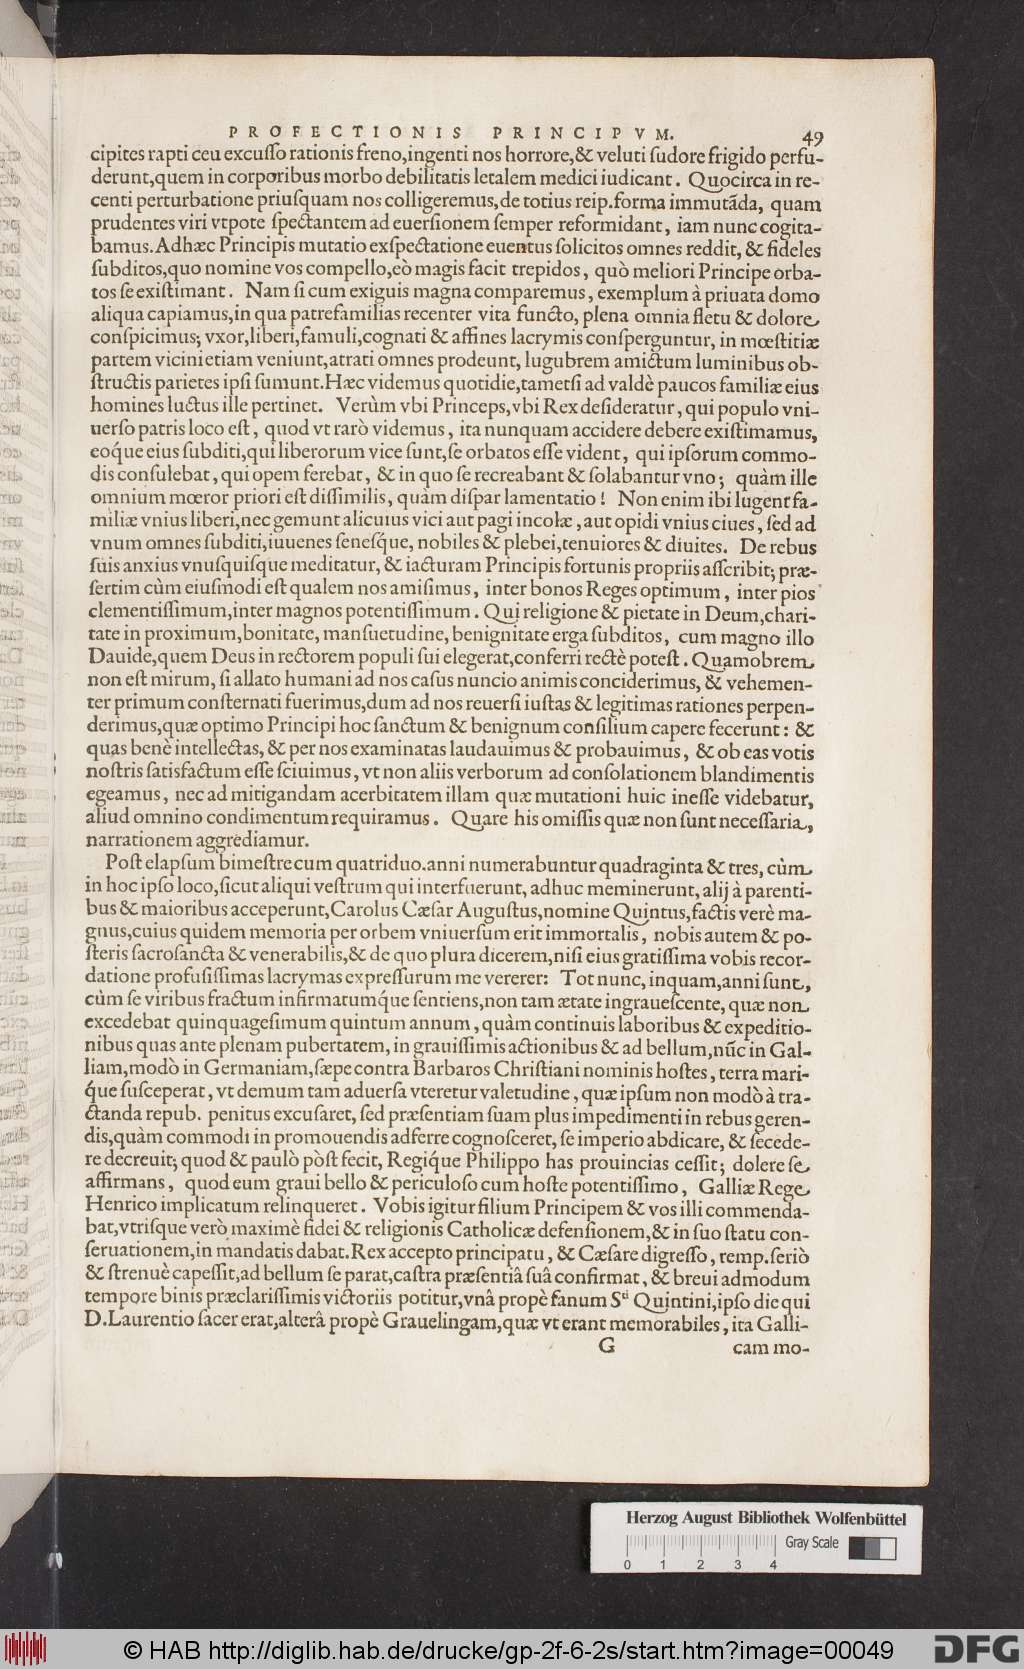 PROFECTIONIS PRINCIPVM. 49
cipites rapti ceu excuſſo rationis freno,ingenti nos horrore,& veluti ſudore frigido perfu-
derunt,quem in corporibus morbo debilitatis letalem medici iudicant. Quocirca in re-
centi perturbatione priuſquam nos colligeremus,de totius reip.forma immutãda, quam
prudentes viri vtpote ſpectantem ad euerſionem ſemper reformidant, iam nunc cogita-
bamus.Adhæc Principis mutatio exſpectatione euentus ſolicitos omnes reddit, & fideles
ſubditos,quo nomine vos compello,eò magis facit trepidos, quò meliori Principe orba-
tos ſe exiſtimant. Nam ſi cum exiguis magna comparemus, exemplum à priuata domo
aliqua capiamus,in qua patrefamilias recenter vita functo, plena omnia fletu & dolore
conſpicimus; vxor,liberi,famuli,cognati & affines lacrymis conſperguntur, in mœſtitiæ
partem vicini etiam veniunt,atrati omnes prodeunt, lugubrem amictum luminibus ob-
ſtructis parietes ipſi ſumunt.Hæc videmus quotidie,tametſi ad valdè paucos familiæ eius
homines luctus ille pertinet. Verùm vbi Princeps,vbi Rex deſideratur, qui populo vni-
uerſo patris loco eſt, quod vt rarò videmus, ita nunquam accidere debere exiſtimamus,
eoq́ue eius ſubditi,qui liberorum vice ſunt,ſe orbatos eſſe vident, qui ipſorum commo-
dis conſulebat, qui opem ferebat, & in quo ſe recreabant & ſolabantur vno; quàm ille
omnium mœror priori eſt diſſimilis, quàm diſpar lamentatio! Non enim ibi lugent fa-
miliæ vnius liberi,nec gemunt alicuius vici aut pagi incolæ, aut opidi vnius ciues, ſed ad
vnum omnes ſubditi,iuuenes ſenesq́ue, nobiles & plebei,tenuiores & diuites. De rebus
ſuis anxius vnuſquiſque meditatur, & iacturam Principis fortunis propriis aſſcribit; præ-
ſertim cùm eiuſmodi eſt qualem nos amiſimus, inter bonos Reges optimum, inter pios
clementiſſimum,inter magnos potentiſſimum. Qui religione & pietate in Deum,chari-
tate in proximum,bonitate, manſuetudine, benignitate erga ſubditos, cum magno illo
Dauide,quem Deus in rectorem populi ſui elegerat,conferri rectè poteſt. Quamobrem
non eſt mirum, ſi allato humani ad nos caſus nuncio animis conciderimus, & vehemen-
ter primum conſternati fuerimus,dum ad nos reuerſi iuſtas & legitimas rationes perpen-
derimus,quæ optimo Principi hoc ſanctum & benignum conſilium capere fecerunt: &
quas benè intellectas, & per nos examinatas laudauimus & probauimus, & ob eas votis
noſtris ſatisfactum eſſe ſciuimus, vt non aliis verborum ad conſolationem blandimentis
egeamus, nec ad mitigandam acerbitatem illam quæ mutationi huic ineſſe videbatur,
aliud omnino condimentum requiramus. Quare his omiſſis quæ non ſunt neceſſaria,
narrationem aggrediamur.
Poſt elapſum bimeſtre cum quatriduo.anni numerabuntur quadraginta & tres, cùm
in hoc ipſo loco,ſicut aliqui veſtrum qui interfuerunt, adhuc meminerunt, alij à parenti-
bus & maioribus acceperunt,Carolus Cæſar Auguſtus,nomine Quintus,factis verè ma-
gnus,cuius quidem memoria per orbem vniuerſum erit immortalis, nobis autem & po-
ſteris ſacroſancta & venerabilis,& de quo plura dicerem,niſi eius gratiſſima vobis recor-
datione profuſiſſimas lacrymas expreſſurum me vererer: Tot nunc,inquam,anni ſunt,
cùm ſe viribus fractum infirmatumq́ue ſentiens,non tam ætate ingraueſcente, quæ non
excedebat quinquageſimum quintum annum, quàm continuis laboribus & expeditio-
nibus quas ante plenam pubertatem, in grauiſſimis actionibus & ad bellum,nũc in Gal-
liam,modò in Germaniam,ſæpe contra Barbaros Chriſtiani nominis hoſtes, terra mari-
q́ue ſuſceperat, vt demum tam aduerſa vteretur valetudine, quæ ipſum non modò à tra-
ctanda repub. penitus excuſaret, ſed præſentiam ſuam plus impedimenti in rebus geren-
dis,quàm commodi in promouendis adferre cognoſceret, ſe imperio abdicare, & ſecede-
re decreuit; quod & paulò pòſt fecit, Regiq́ue Philippo has prouincias ceſſit; dolere ſe
affirmans, quod eum graui bello & periculoſo cum hoſte potentiſſimo, Galliæ Rege
Henrico implicatum relinqueret. Vobis igitur filium Principem & vos illi commenda-
bat,vtriſque verò maximè fidei & religionis Catholicæ defenſionem,& in ſuo ſtatu con-
ſeruationem,in mandatis dabat.Rex accepto principatu, & Cæſare digreſſo, remp.ſeriò
& ſtrenuè capeſſit,ad bellum ſe parat,caſtra præſentiâ ſuâ confirmat, & breui admodum
tempore binis præclariſſimis victoriis potitur,vnâ propè fanum Sti Quintini,ipſo die qui
D.Laurentio ſacer erat,alterâ propè Grauelingam,quæ vt erant memorabiles, ita Galli-
G cam mo-
Herzog August Bibliothek Wolfenbüttel
Gray Scale
0 1 2 3 4
© HAB http://diglib.hab.de/drucke/gp-2f-6-2s/start.htm?image=00049 DFG